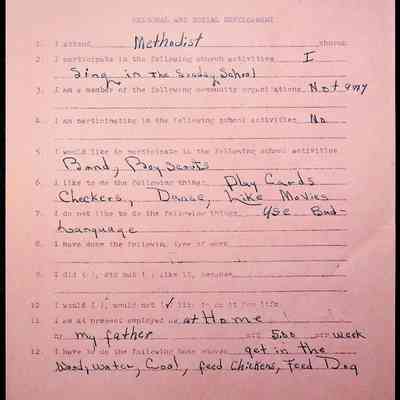 PERSONAL AND SOCIAL DEVELOPMENT
1. I attend Methodist church
2. I participate in the following church activities I
Sing in The Sunday School
3. I am a member of the following community organizations Not any
4. I am participating in the following school activities No
5. I would like to participate in the following school activities
Band, Boy Scouts
6. I like to do the following things Play Cards
Checkers, Dance, Like Movies
7. I do not like to do the following things Use Bad
Language
8. I have done the following type of work
9. I did ( ), did not ( ) like it, because
10. I would ( ), would not (✓) like to do it for life
11. I am at present employed as at Home
by my father at 5.00 per week
12. I have to do the following home chores get in the
Wood, water, Coal, feed Chickers, Feed Dog